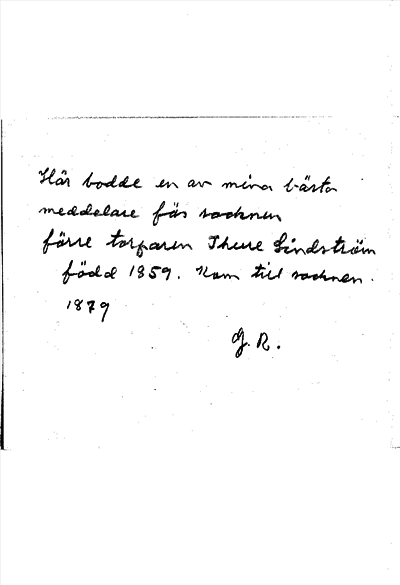 Här bodde en av mina bästa
meddelare från socknen
förre torparen Thure Lindström
född 1859. Kom till socknen.
1879
G. R.